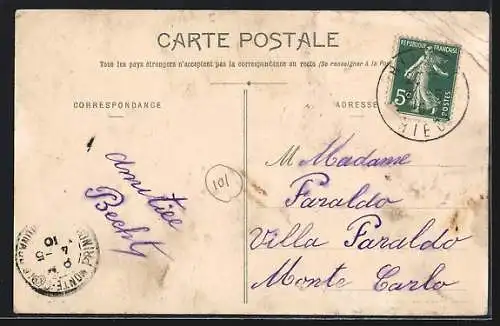 CARTE POSTALE
Tous les pays étrangers n'acceptent pas la correspondance au recto (Se renseigner à la Poste)
CORRESPONDANCE
ADRESSE
REPUBLIQUE FRANÇAISE
5c
POSTES
101
amitiée
M Madame
Faraldo
Villa Faraldo
Monte Carlo
MONTE-CARLO
5
4
10